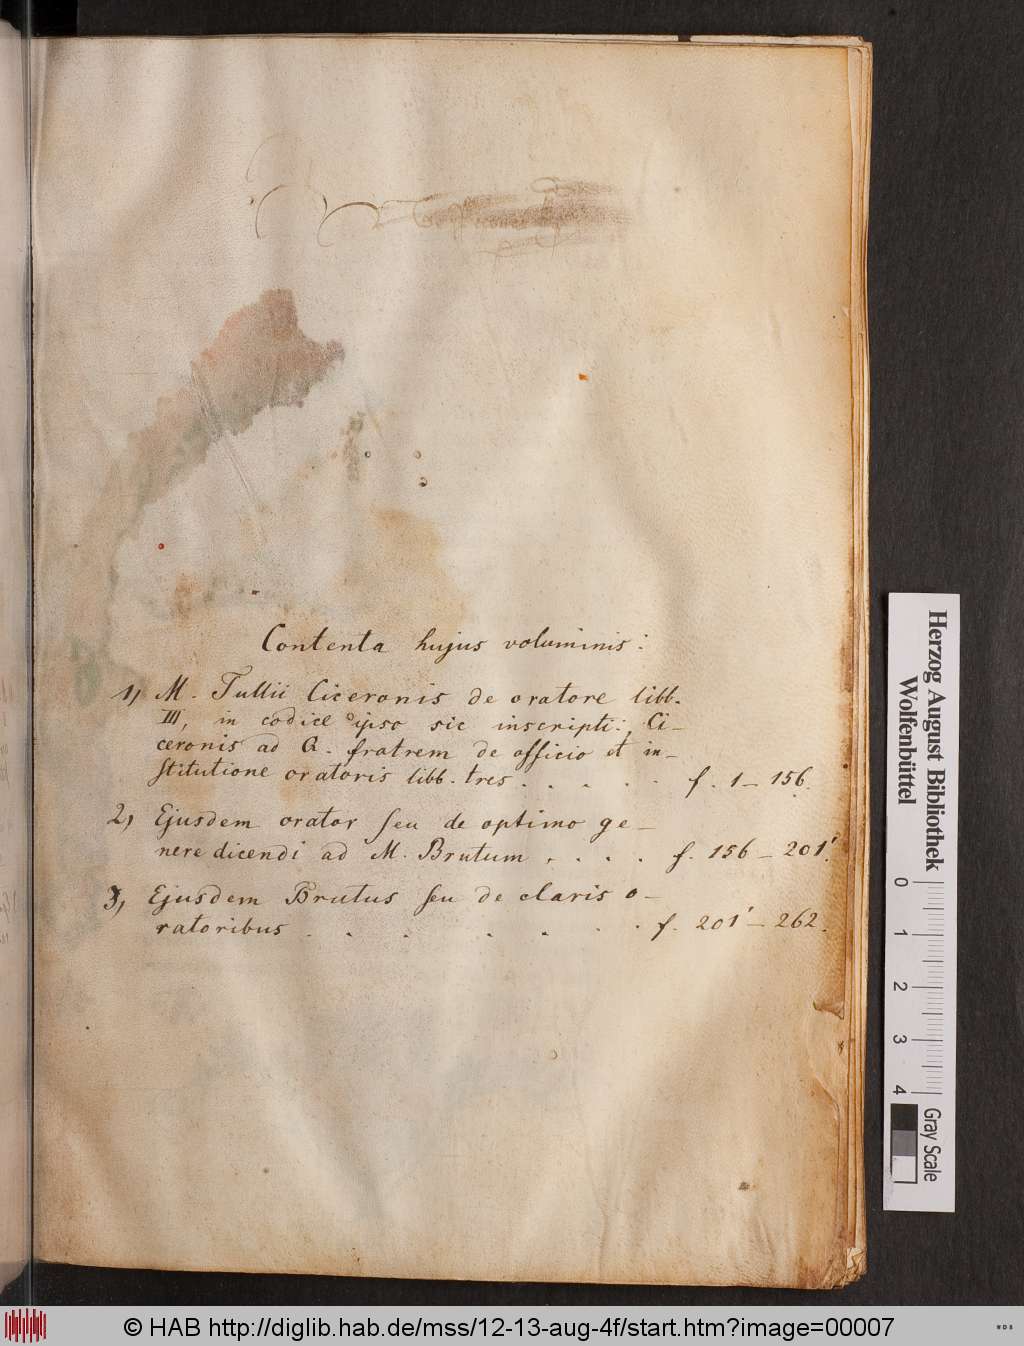 Contenta hujus voluminis:
1) M. Tullii Ciceronis de oratore libb.
III, in codice ipso sic inscripti: Ci-
ceronis ad Q. fratrem de officio et in-
stitutione oratoris libb. tres . . . . . f. 1-156.
2) Ejusdem orator seu de optimo ge-
nere dicendi ad M. Brutum . . . . f. 156-201'.
3) Ejusdem Brutus seu de claris o-
ratoribus . . . . . . . f. 201'-262.
Herzog August Bibliothek
Wolfenbüttel
0 1 2 3 4
Gray Scale
© HAB http://diglib.hab.de/mss/12-13-aug-4f/start.htm?image=00007